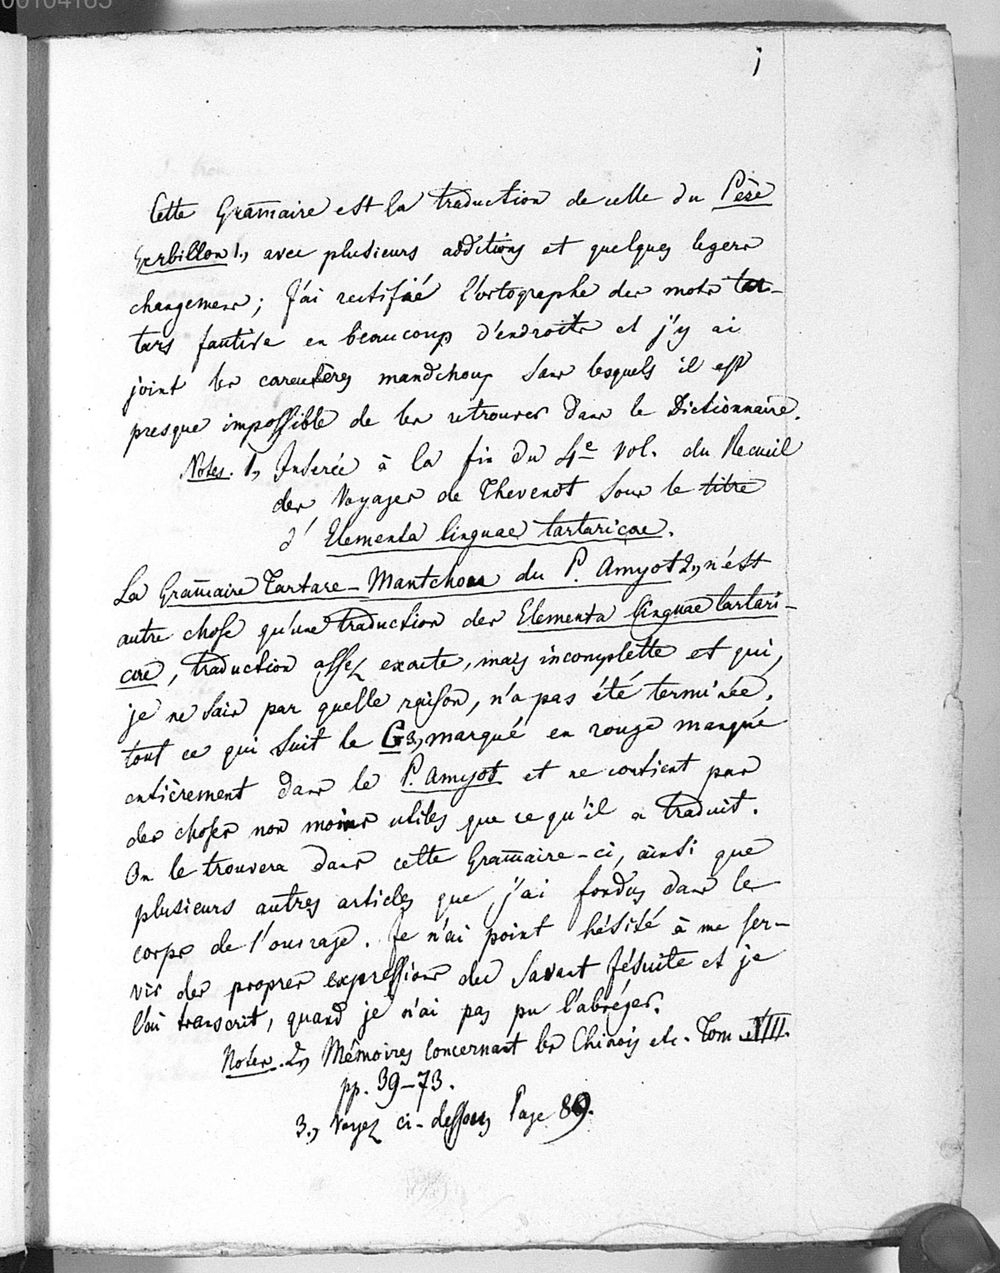 00104105
j
Cette Gram̄aire est la traduction de celle du Père
Gerbillon 1., avec plusieurs additions et quelques legers
changemens; J'ai rectifié l'ortographe des mots tar-
tars fautive en beaucoup d'endroits et j'y ai
joint les caractères mandchoux sans lesquels il est
presque impossible de les retrouver dans le Dictionnaire.
Notes. 1., Inserée à la fin du 4e vol. du Recueil
des Voyages de Thevenot sous le titre
d'Elementa linguae tartaricae.
La Gram̄aire Tartare-Mantchou du P. Amyot 2., n'est
autre chose qu'une traduction des Elementa linguae tartari-
cae, traduction assez exacte, mais incomplette et qui,
je ne sais par quelle raison, n'a pas été terminée,
tout ce qui suit le G 3., marqué en rouge manque
entièrement dans le P. Amyot et ne contient pas
des choses non moins utiles que ce qu'il a traduit.
On le trouvera dans cette Gram̄aire-ci, ainsi que
plusieurs autres articles que j'ai fondus dans le
corps de l'ouvrage. Je n'ai point hésité à me ser-
vir des propres expressions du Savant Jésuite et je
l'ai transcrit, quand je n'ai pas pu l'abréger.
Notes. 2., Mémoires concernant les Chinois etc. Tom XIII.
pp. 39-73.
3., Voyez ci-dessous Page 89.